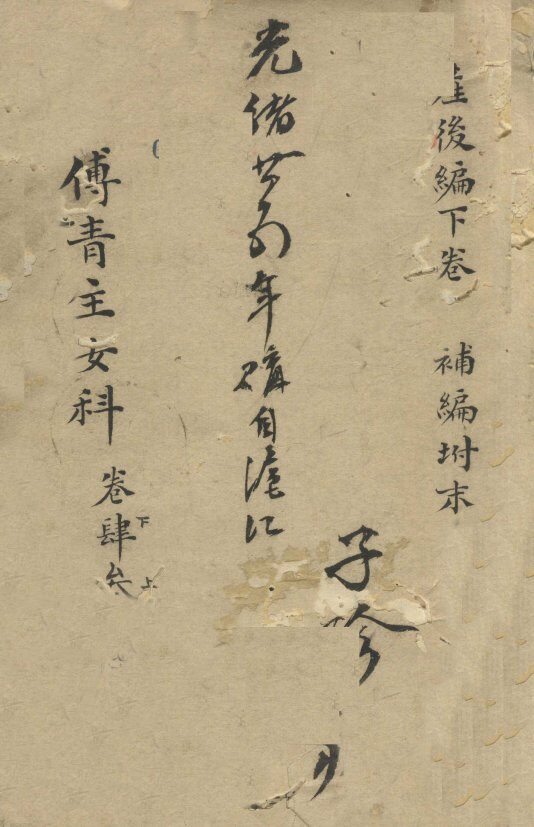 產後編下卷 補編坿末
光緒廿五年購自滬江
子珍
傅青主女科 卷肆下 上